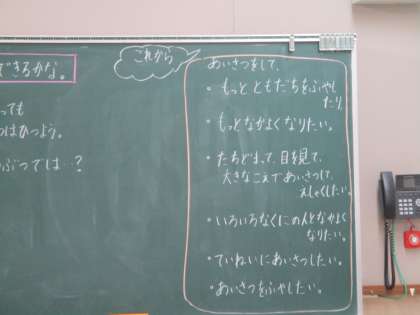 できるかな。
っても
はひつよう。
ぶつでは…?
これから
あいさつをして、
・もっとともだちをふやし
たり
・もっとなかよくなりたい。
・たちどまって、目を見て、
大きなこえであいさつして
えしゃくしたい。
・いろいろなくにの人となかよく
なりたい。
・ていねいにあいさつしたい。
・あいさつをふやしたい。